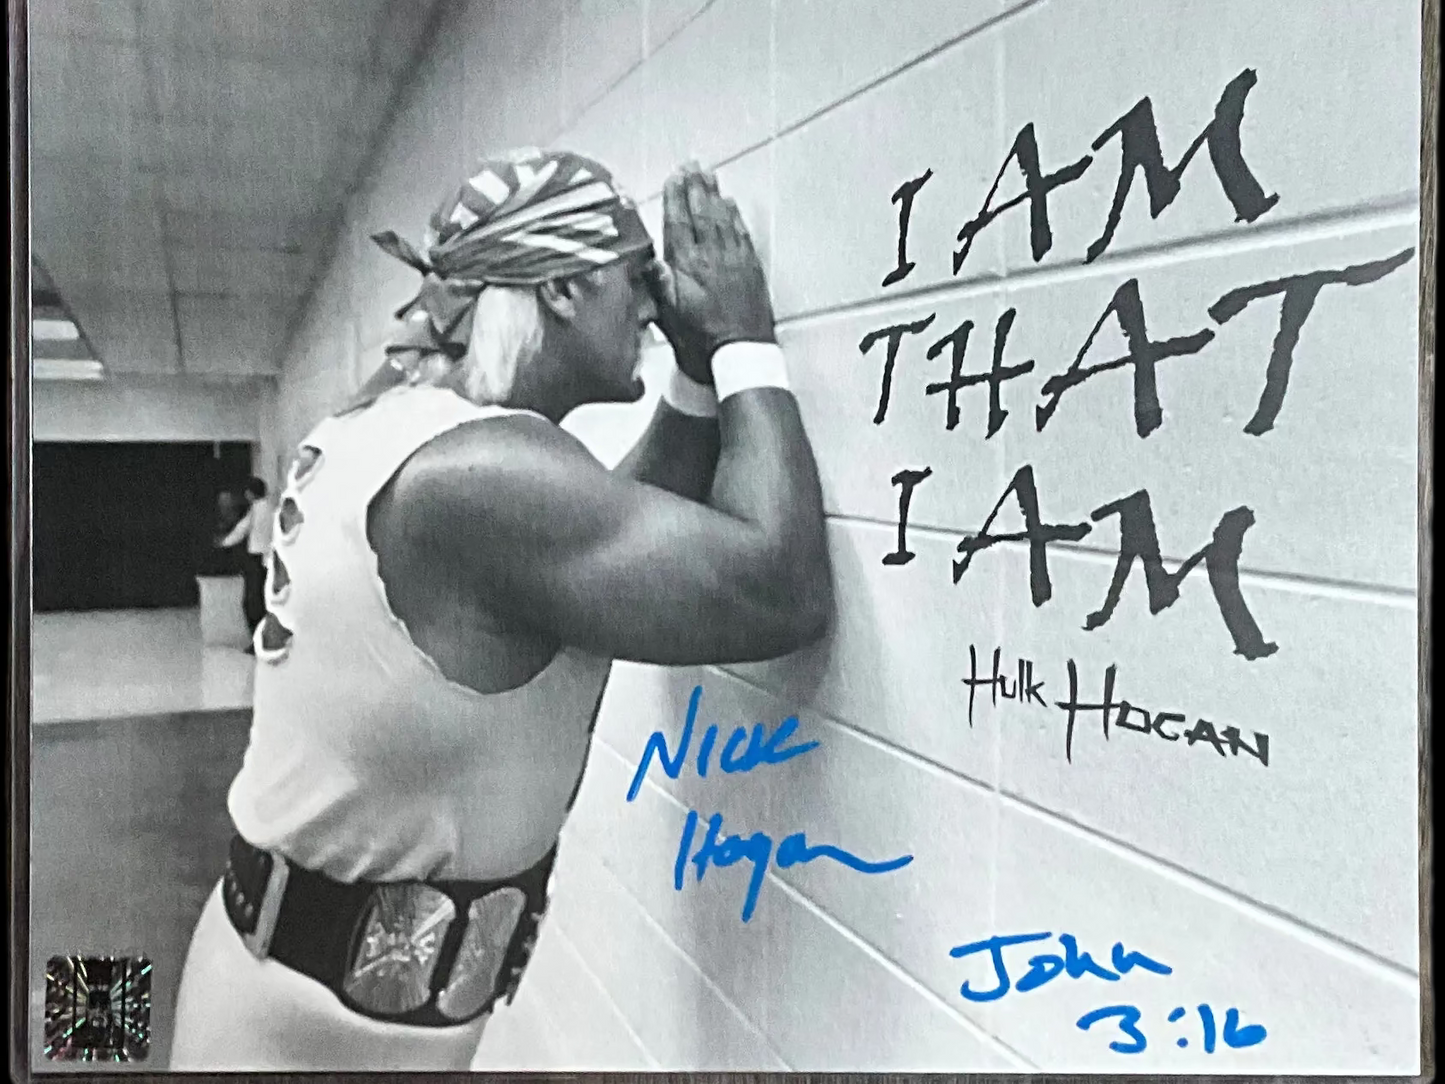 I AM
THAT
I AM
Hulk HOGAN
Nick
Hogan
John
3:16